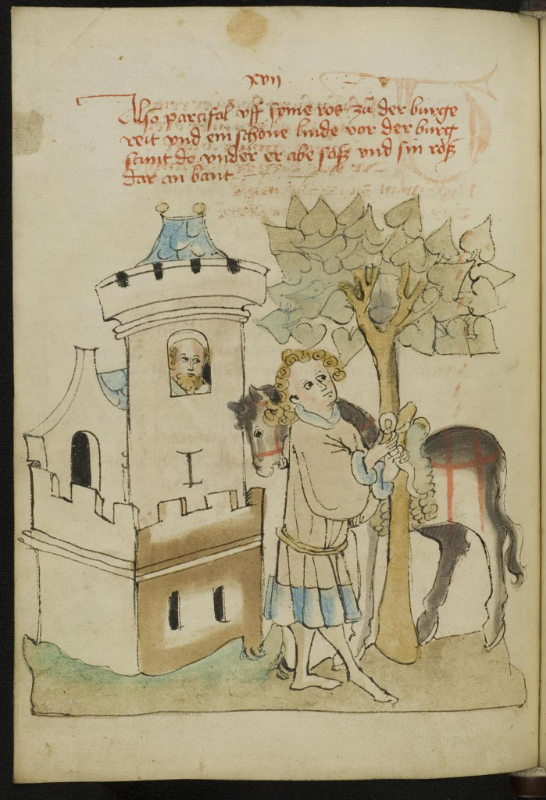 xvii
Also parcifal vff syme ros zů der burge
reit vnd ein schöne linde vor der burg
stunt do vnder er abe saß vnd sin roß
dar an bant